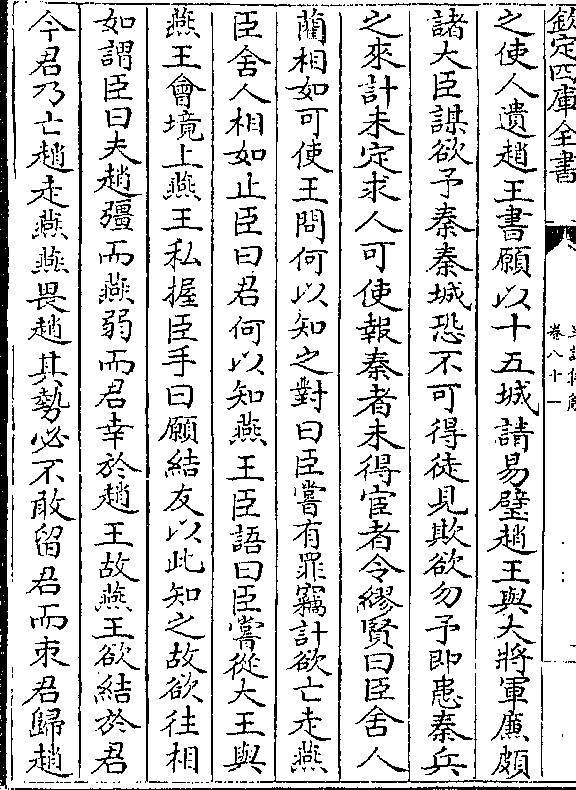 欽定四庫全書
卷八十一
之使人遺趙王書願以十五城請易璧趙王與大將軍廉頗
諸大臣謀欲予秦秦城恐不可得徒見欺欲勿予即患秦兵
之來計未定求人可使報秦者未得宦者令繆賢曰臣舍人
藺相如可使王問何以知之對曰臣嘗有罪竊計欲亡走燕
臣舍人相如止臣曰君何以知燕王臣語曰臣嘗從大王與
燕王會境上燕王私握臣手曰願結友以此知之故欲往相
如謂臣曰夫趙彊而燕弱而君幸於趙王故燕王欲結於君
今君乃亡趙走燕燕畏趙其勢必不敢留君而束君歸趙